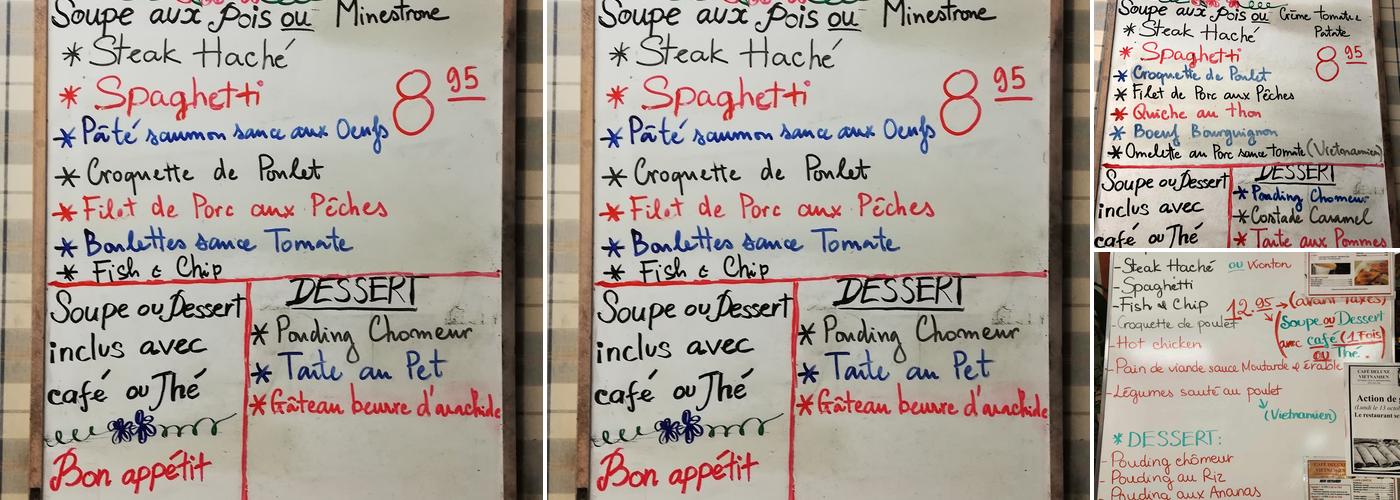 Soupe aux pois ou Minestrone
* Steak Haché
* Spaghetti
8 95
* Pâté saumon sauce aux Oeufs
* Croquette de Poulet
* Filet de Porc aux Pêches
* Boulettes sauce Tomate
* Fish & Chip
Soupe ou Dessert
inclus avec
café ou Thé
Bon appétit
DESSERT
* Pouding Chomeur
* Tarte au Pet
* Gâteau beurre d'arachide
Soupe aux pois ou Minestrone
* Steak Haché
* Spaghetti
8 95
* Pâté saumon sauce aux Oeufs
* Croquette de Poulet
* Filet de Porc aux Pêches
* Boulettes sauce Tomate
* Fish & Chip
Soupe ou Dessert
inclus avec
café ou Thé
Bon appétit
DESSERT
* Pouding Chomeur
* Tarte au Pet
* Gâteau beurre d'arachide
Soupe aux pois ou Crème tomate
Patate
* Steak Haché
* Spaghetti
8 95
* Croquette de Poulet
* Filet de Porc aux Pêches
* Quiche au thon
* Boeuf Bourguignon
* Omelette au Porc sauce tomate (Vietnamien)
Soupe ou Dessert
inclus avec
café ou Thé
DESSERT
* Pouding Chomeur
* Costade Caramel
* Tarte aux Pommes
- Steak Haché ou Wonton
- Spaghetti
- Fish & Chip 12.95 → (avant taxes)
- Croquette de poulet
(Soupe ou Dessert
avec café (1 Fois)
ou Thé.)
- Hot chicken
- Pain de viande sauce Moutarde & érable
- Légumes sauté au poulet
(Vietnamien)
* DESSERT:
- Pouding chômeur
- Pouding au Riz
- Pouding aux Ananas
CAFÉ DELUXE
VIETNAMIEN
Action de
(Lundi le 13 octo
Le restaurant se